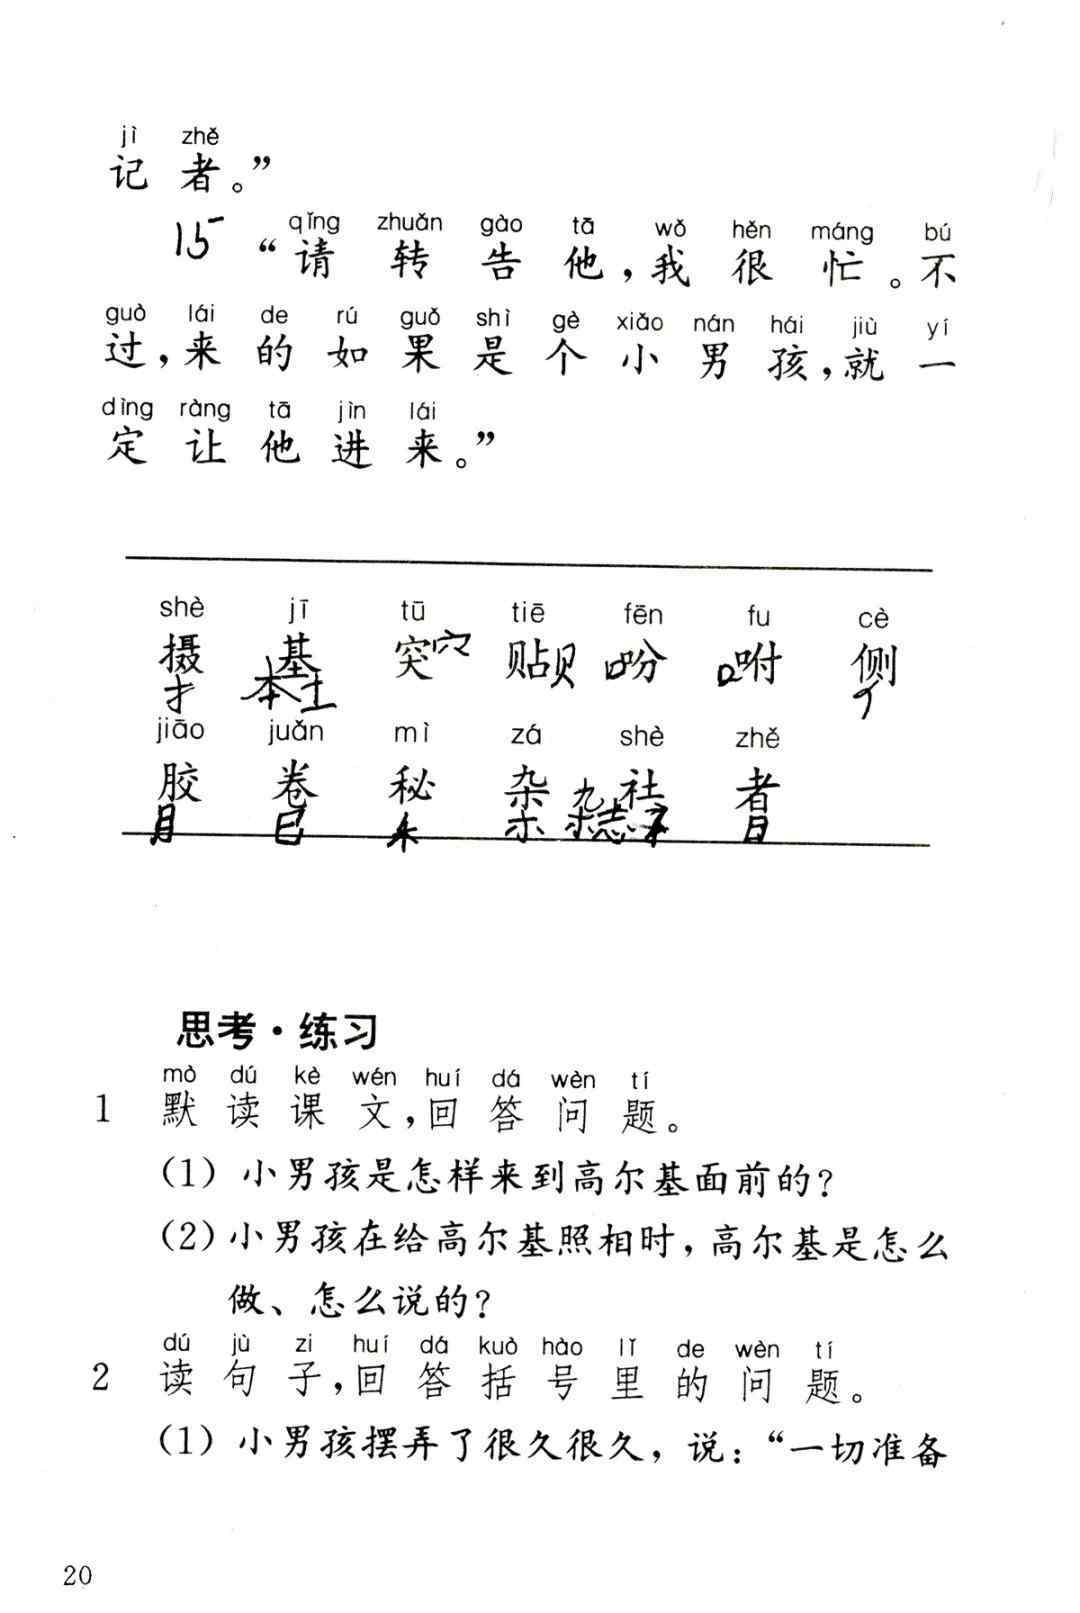 jì zhě
记者。”
15 qǐng zhuǎn gào tā wǒ hěn máng bú
“请转告他，我很忙。不
guò lái de rú guǒ shì gè xiǎo nán hái jiù yí
过，来的如果是个小男孩，就一
dìng ràng tā jìn lái
定让他进来。”
shè jī tū tiē fēn fu cè
摄 基 突 穴 贴 贝 口 吩 口 咐 侧
扌 本 土 亻
jiāo juǎn mì zá shè zhě
胶 卷 秘 杂 社 者
月 㔾 禾 朩 杂志 日
思考·练习
mò dú kè wén huí dá wèn tí
1 默读课文，回答问题。
（1）小男孩是怎样来到高尔基面前的？
（2）小男孩在给高尔基照相时，高尔基是怎么
做、怎么说的？
dú jù zi huí dá kuò hào lǐ de wèn tí
2 读句子，回答括号里的问题。
（1）小男孩摆弄了很久很久，说：“一切准备
20